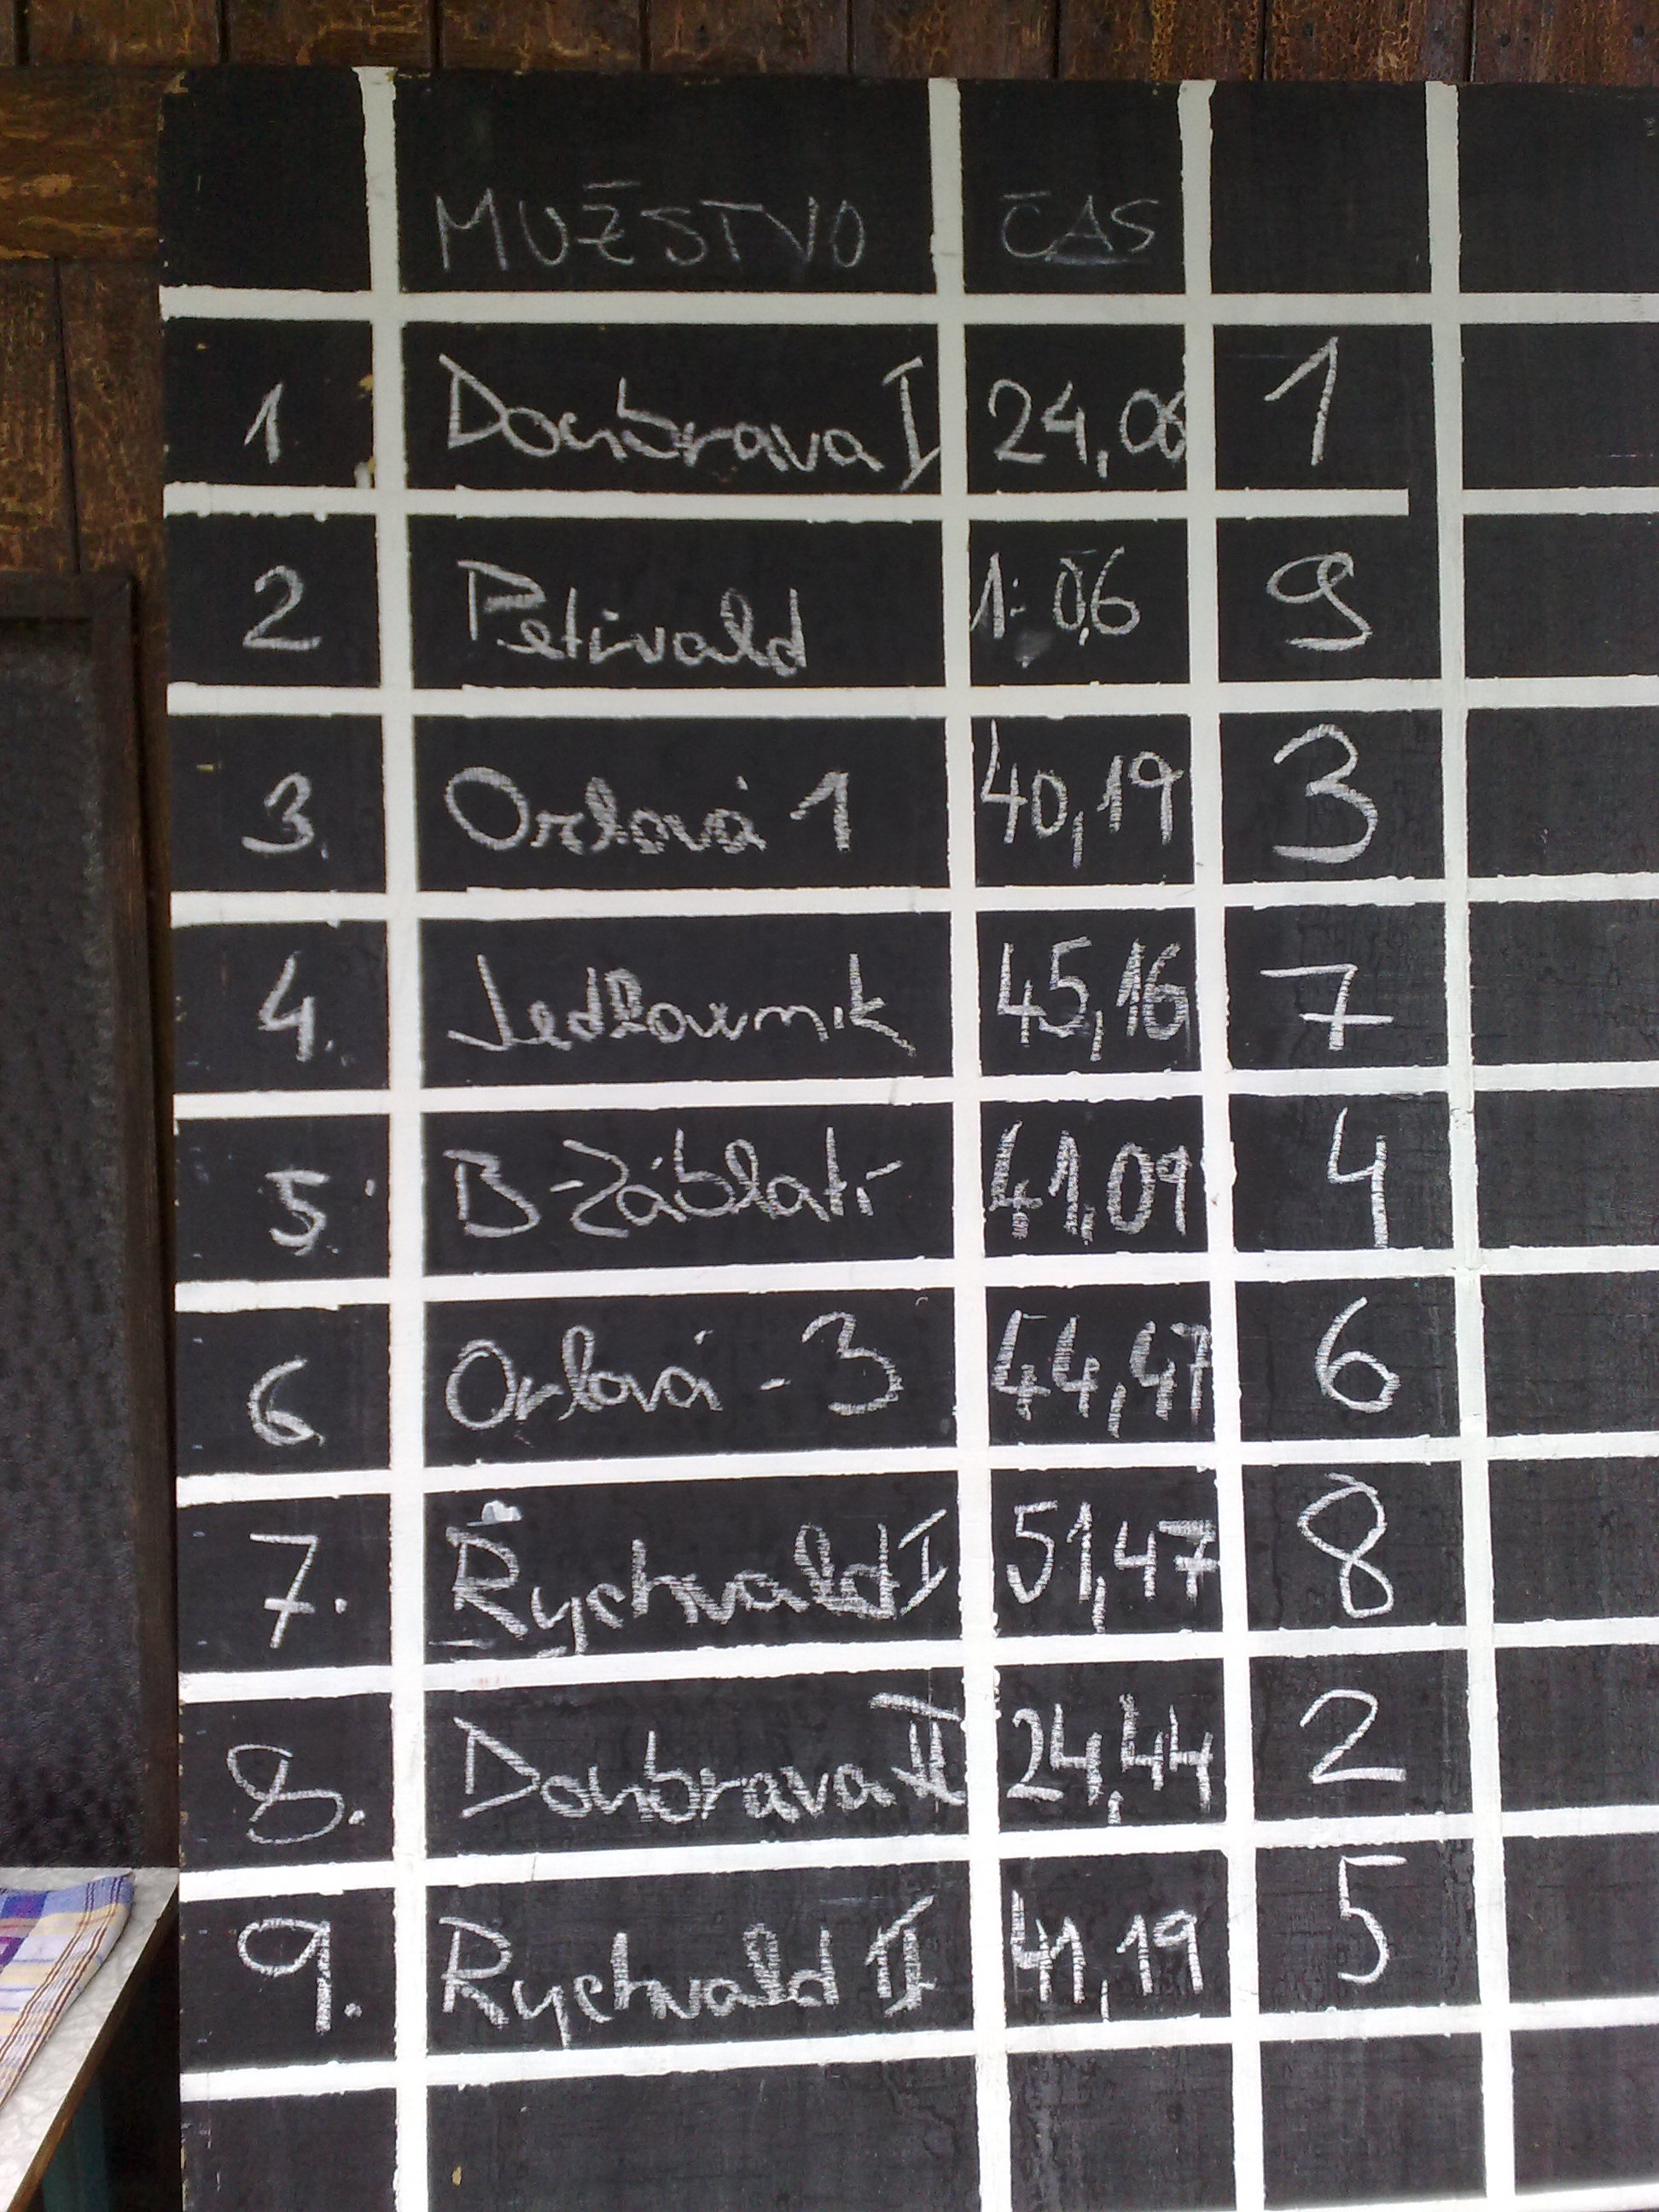 MUŽSTVO ČAS
1 Doubrava I 24,06 1
2 Petřvald 1:06 9
3. Orlová 1 40,19 3
4. Jedłownik 45,16 7
5. B-Záblatí 41,09 4
6 Orlová - 3 44,47 6
7. Rychvald I 51,47 8
8. Doubrava II 24,44 2
9. Rychvald II 41,19 5